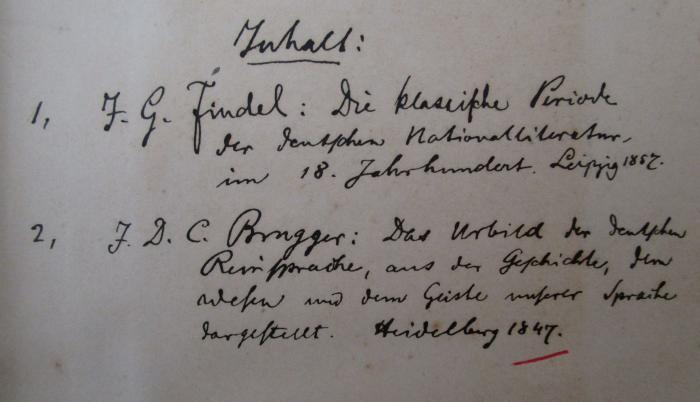 Inhalt:
1, J. G. Findel: Die klassische Periode
der deutschen Nationalliteratur
im 18. Jahrhundert. Leipzig 1857.
2, J. D. C. Brugger: Das Urbild der deutschen
Reinsprache, aus der Geschichte, dem
Wesen und dem Geiste unserer Sprache
dargestellt. Heidelberg 1847.